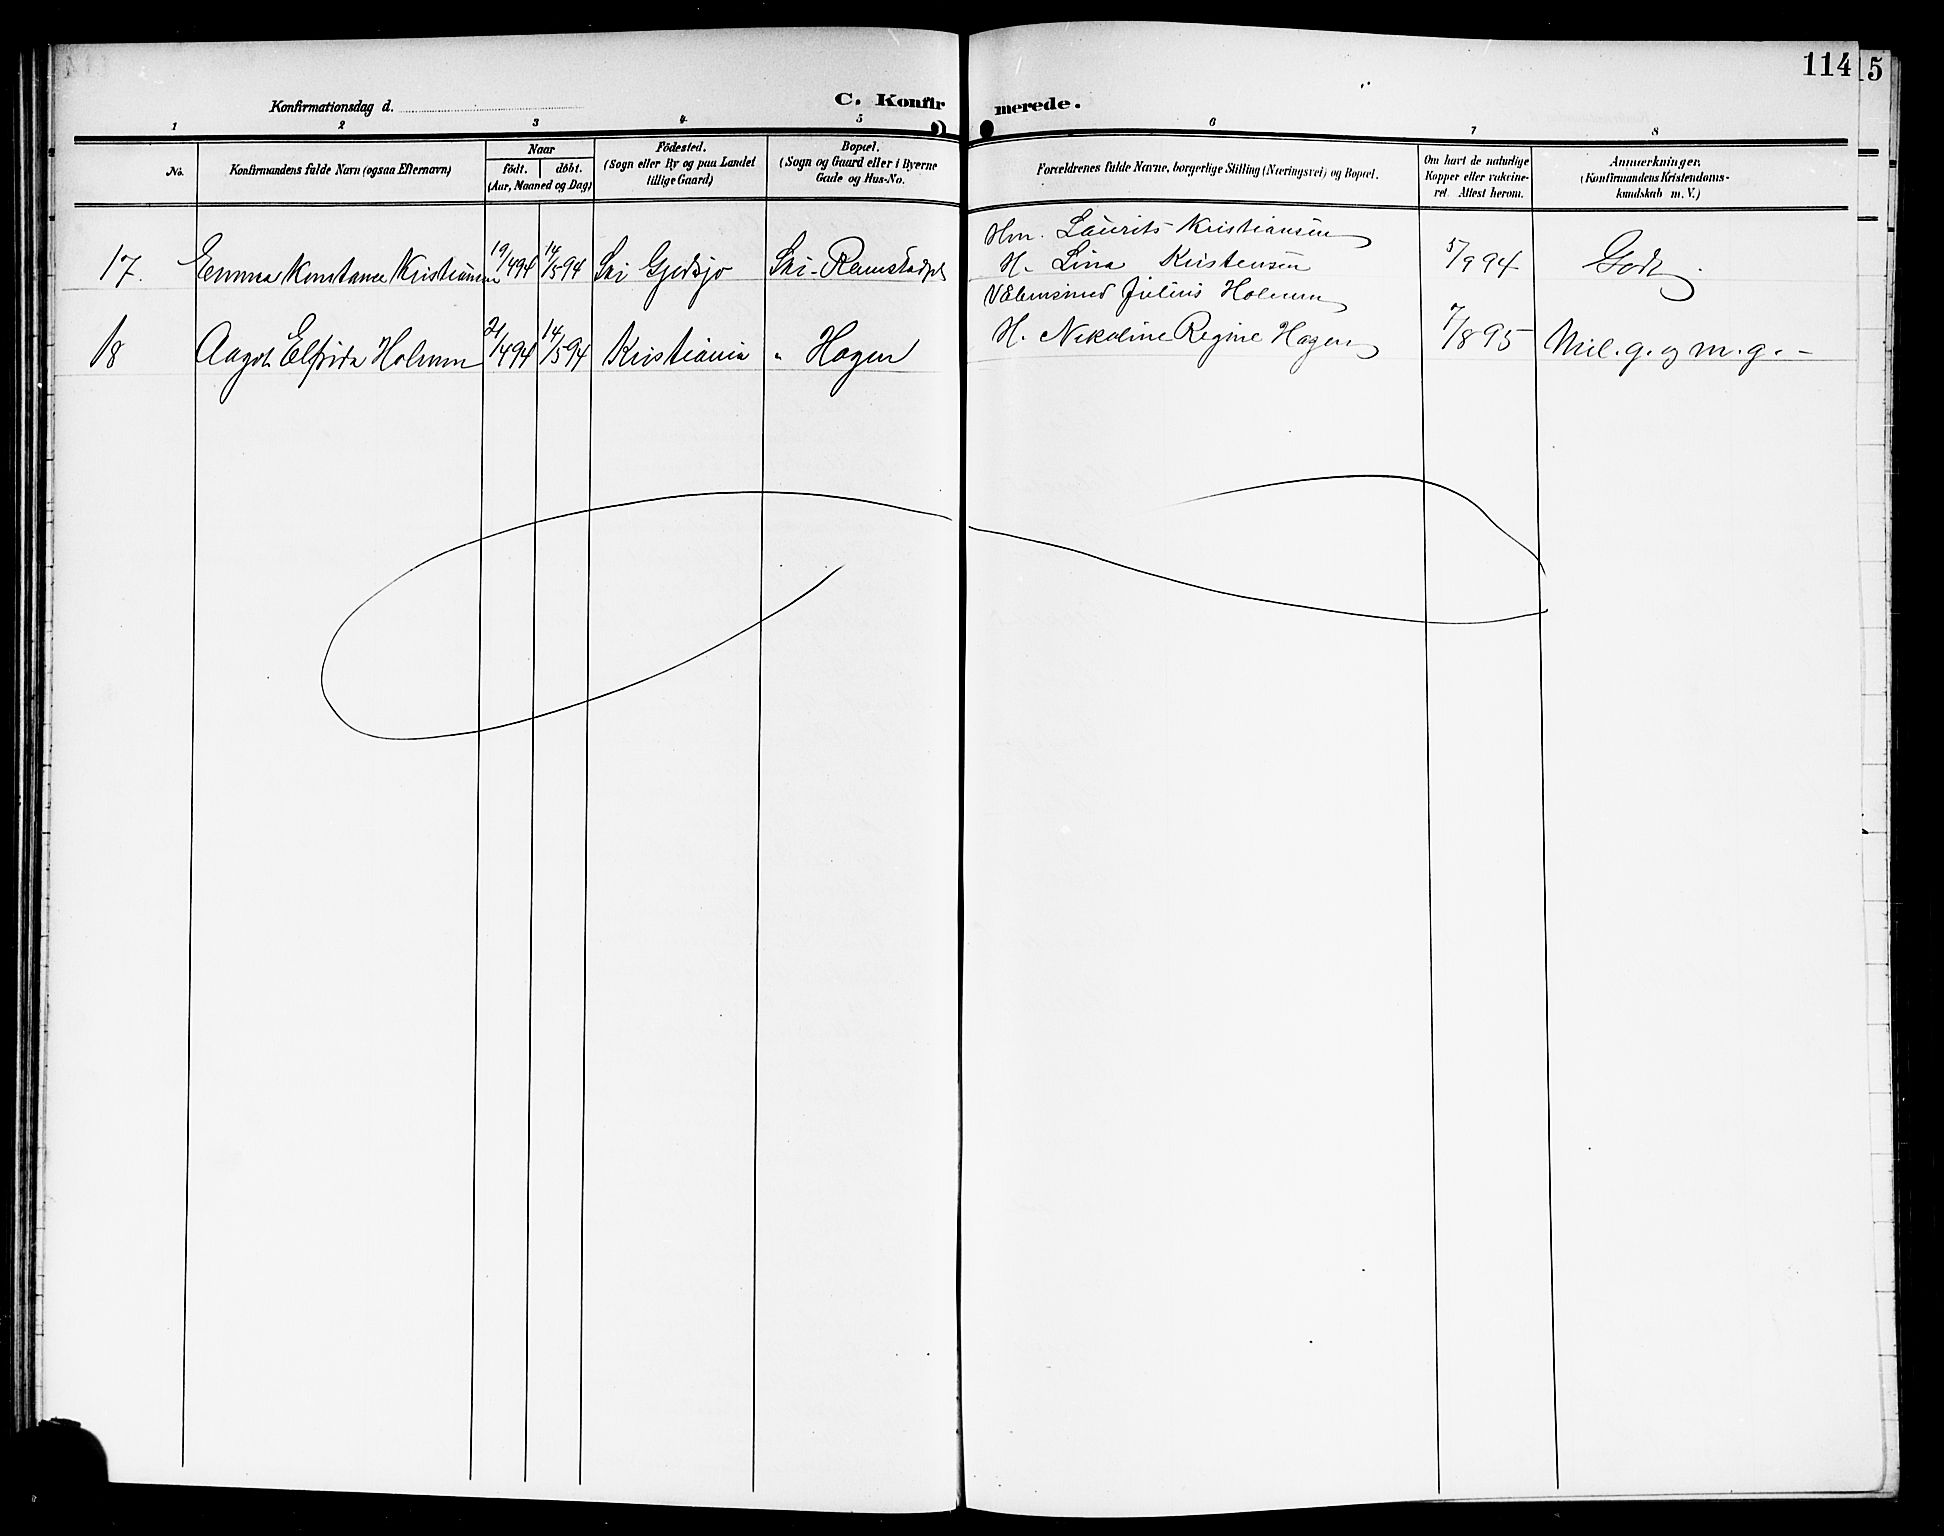 114
5
Konfirmationsdag d.
C. Konfirmerede.
1 2 3 4 5 6 7 8
No.
Konfirmandens fulde Navn (ogsaa Efternavn)
Naar
födt. döbt.
(Aar, Maaned og Dag)
Födested.
(Sogn eller By og paa Landet
tillige Gaard)
Bopæl.
(Sogn og Gaard eller i Byerne
Gade og Hus-No.
Forældrenes fulde Navne, borgerlige Stilling (Næringsvei) og Bopæl.
Om havt de naturlige
Kopper eller vakcine-
ret. Attest herom.
Anmærkninger.
(Konfirmandens Kristendoms-
kundskab m. V.)
17. Emma Konstance Kristiansen 19/4 94 14/5 94 Ski Gjedsjø Ski-Ramstadpl
Hm. Laurits Kristiansen
H. Lina Kristensen
5/9 94 Godt.
18 Aagot Elfrida Holmen 21/4 94 14/5 94 Kristiania " Hagen
Julius Holmen
H. Nikoline Regine Hagen
7/8 95 Mel. g. og m. g. -